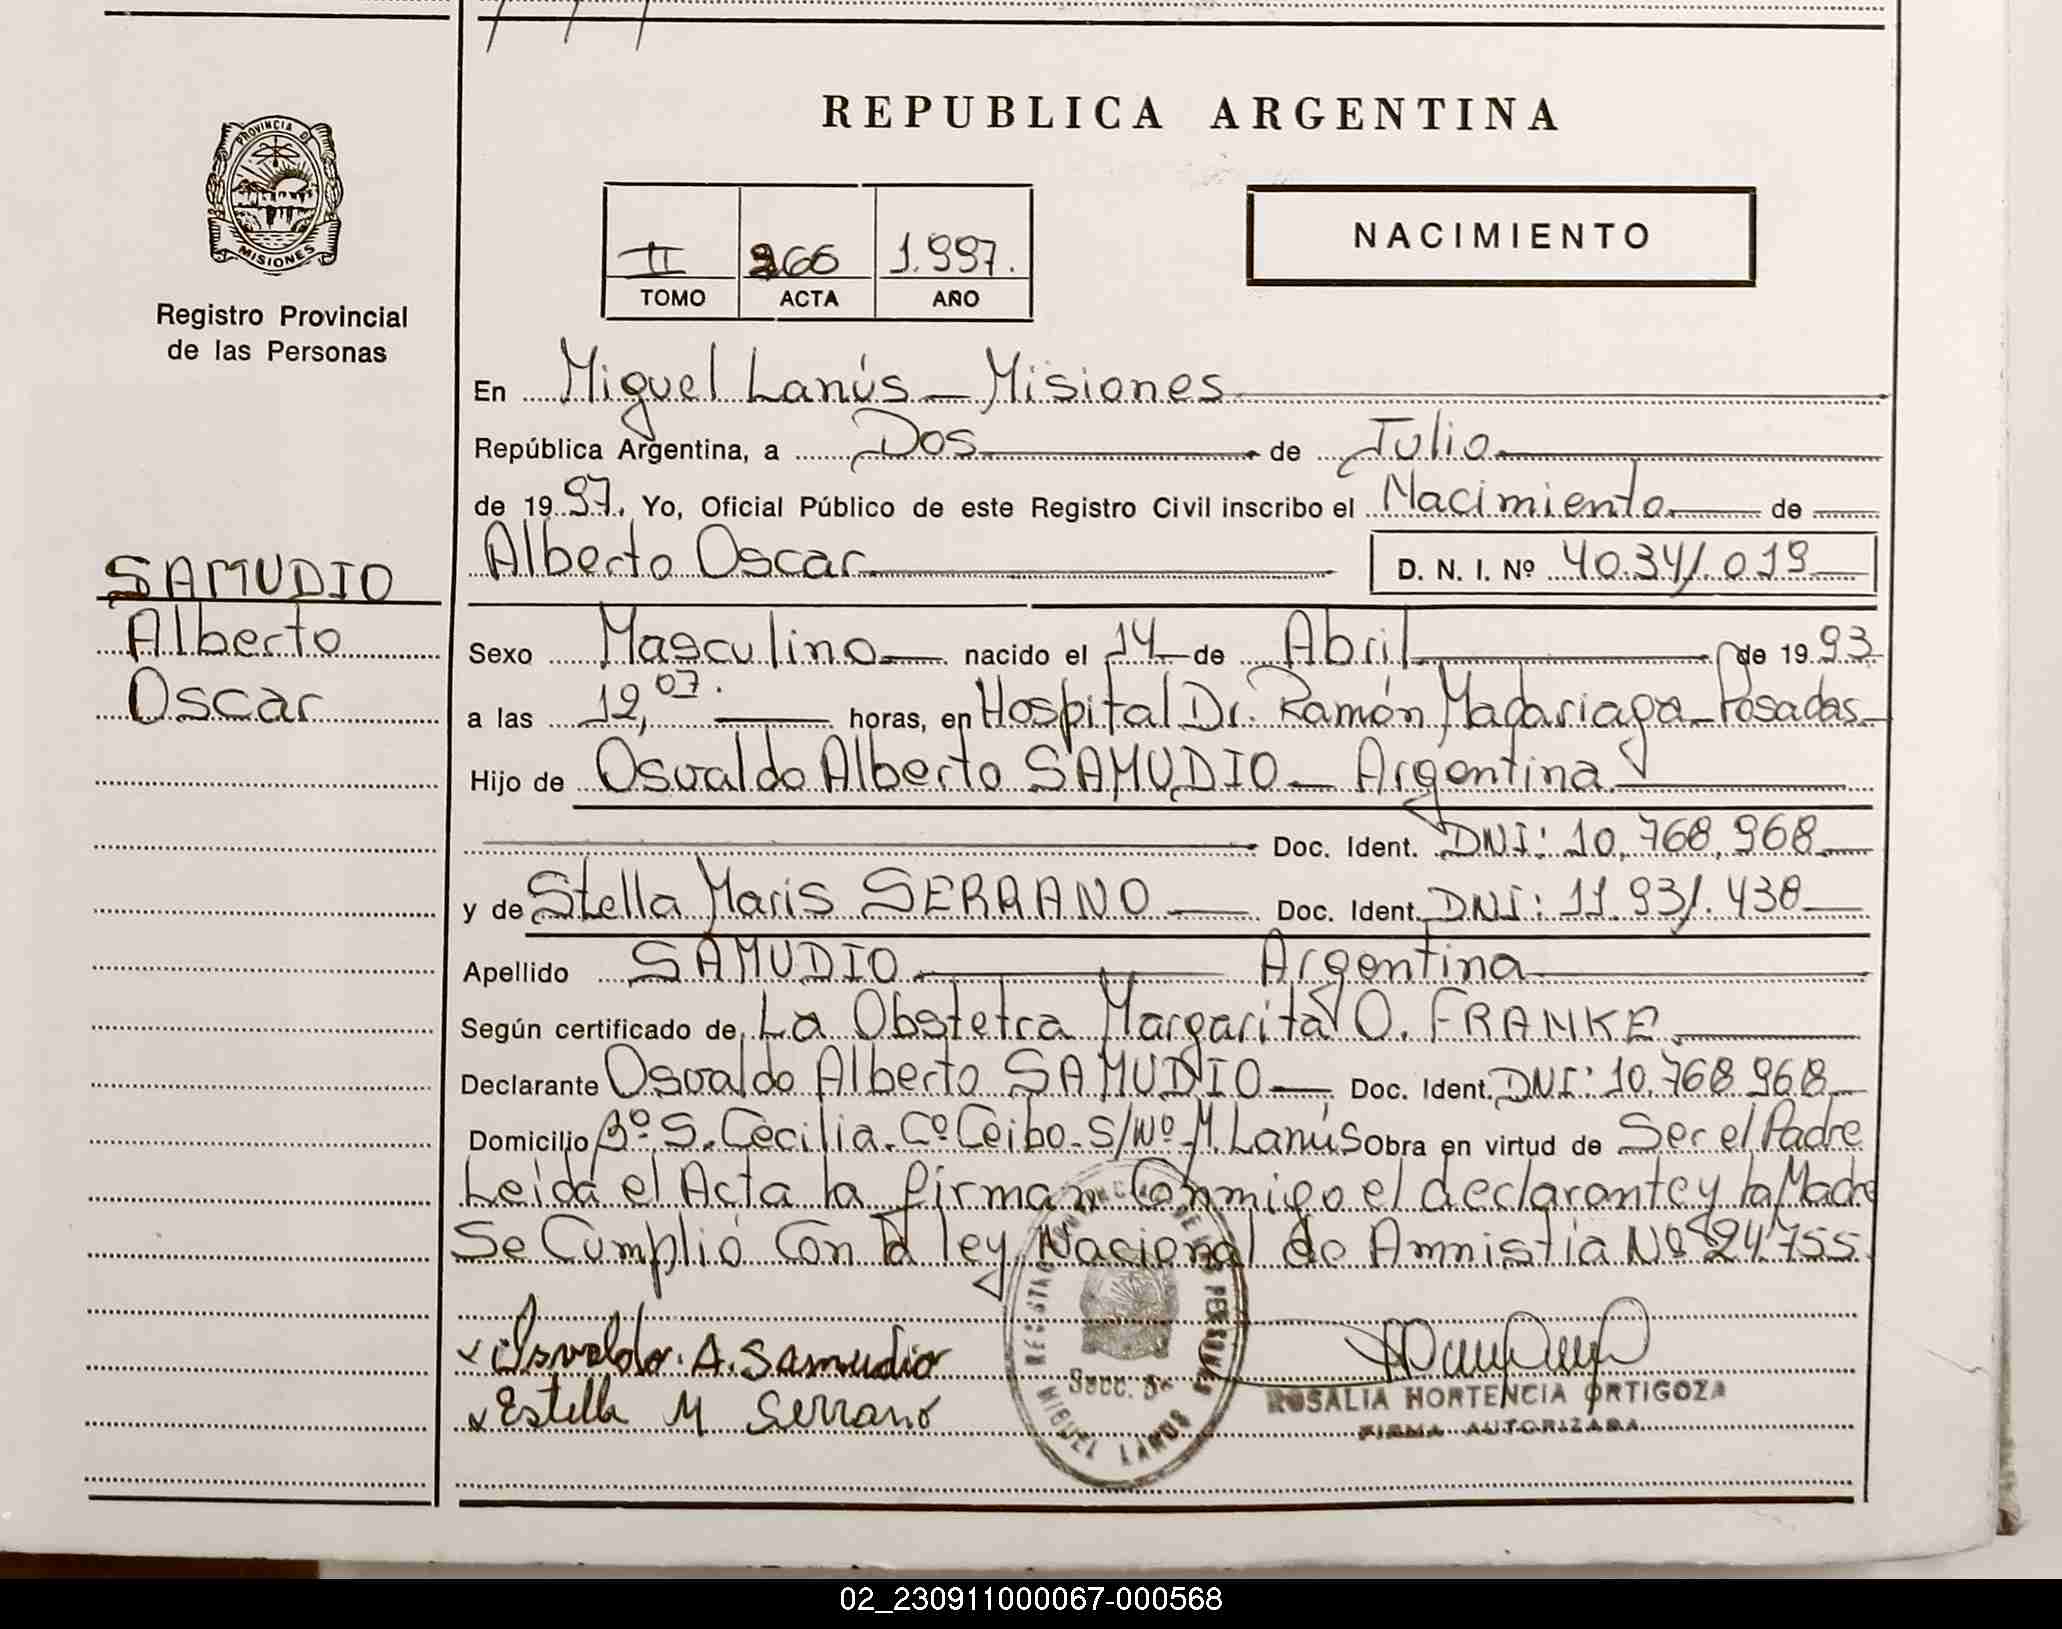 REPUBLICA ARGENTINA
PROVINCIA DE MISIONES
Registro Provincial
de las Personas
II 266 1.997.
TOMO ACTA AÑO
NACIMIENTO
En Miguel Lanús - Misiones
República Argentina, a Dos de Julio
de 1997. Yo, Oficial Público de este Registro Civil inscribo el Nacimiento de
Alberto Oscar D. N. I. Nº 40.341.019
SAMUDIO
Alberto
Oscar
Sexo Masculino nacido el 14 de Abril de 1993
a las 12,07. horas, en Hospital Dr. Ramón Madariaga - Posadas
Hijo de Osvaldo Alberto SAMUDIO - Argentina
Doc. Ident. DNI: 10.768.968
y de Stella Maris SERRANO Doc. Ident. DNI: 11.931.438
Apellido SAMUDIO Argentina
Según certificado de La Obstetra Margarita O. FRANKE
Declarante Osvaldo Alberto SAMUDIO Doc. Ident. DNI: 10.768.968
Domicilio Bº S. Cecilia - Cº Ceibo - S/Nº - M. Lanús Obra en virtud de Ser el Padre
Leida el Acta la firman Conmigo el declarante y la Madre
Se Cumplió Con la ley Nacional de Amnistia Nº 24755.
Osvaldo. A. Samudio
Estella M Serrano
REGISTRO PROVINCIAL DE LAS PERSONAS
Secc. 5ª
MIGUEL LANUS
ROSALIA HORTENCIA ORTIGOZA
FIRMA AUTORIZADA
02_230911000067-000568